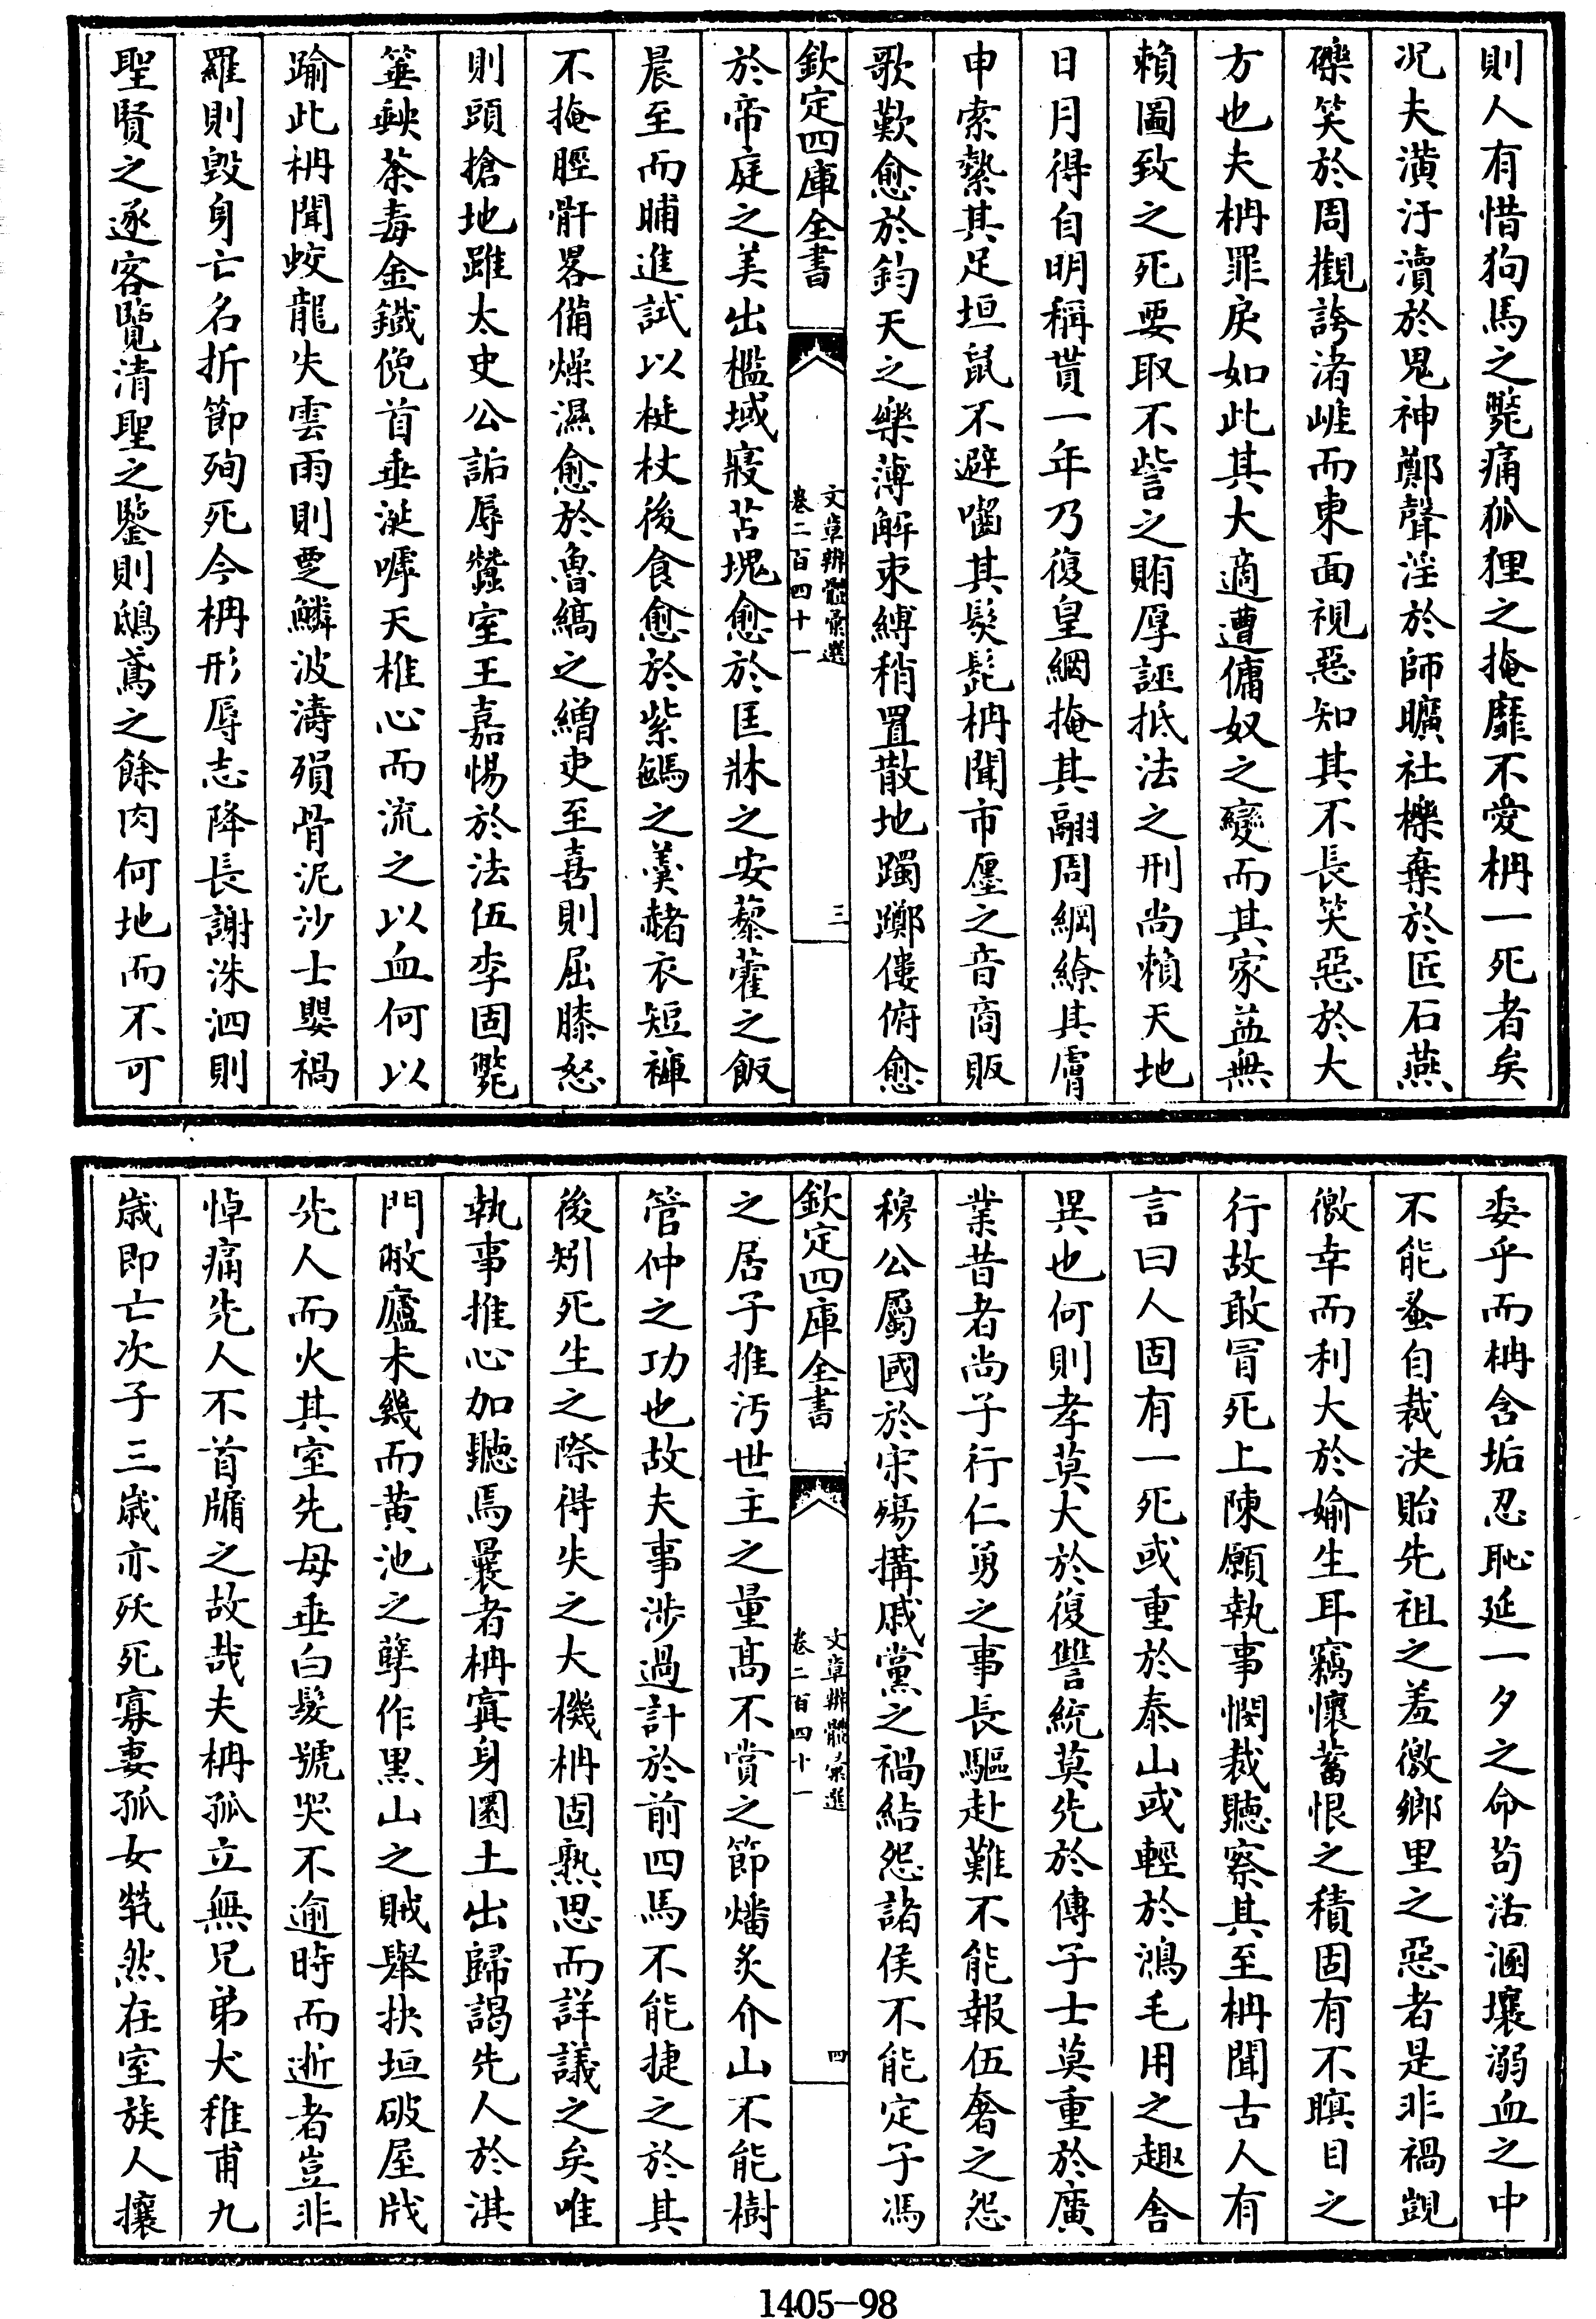 則人有惜狗馬之斃痛狐狸之掩靡不愛柟一死者矣
况夫潢汙瀆於鬼神鄭聲淫於師曠社櫟棄於匠石燕
礫笑於周觀誇渚崕而東面視惡知其不長笑惡於大
方也夫柟罪戾如此其大適遭傭奴之變而其家益無
賴圖致之死要取不訾之賄厚誣抵法之刑尚賴天地
日月得自明稱貰一年乃復皇綱掩其翮周網繚其膚
申索縶其足垣鼠不避囓其髮髭柟聞市廛之音商販
歌歎愈於鈞天之樂薄解束縛稍置散地躅躑僂俯愈
欽定四庫全書
文章辨體彙選
卷二百四十一
三
於帝庭之美出檻域寢苫塊愈於匡牀之安藜藿之飯
晨至而晡進試以梃杖後食愈於紫䲸之羮赭衣短褲
不掩脛骭畧備燥濕愈於魯縞之繒吏至喜則屈膝怒
則頭搶地雖太史公詬辱蠶室王嘉惕於法伍李固斃
箠𩊱荼毒金鐵俛首垂涎嘑天椎心而流之以血何以
踰此柟聞蛟龍失雲雨則㪅鱗波濤殞骨泥沙士嬰禍
羅則毀身亡名折節殉死今柟形辱志降長謝洙泗則
聖賢之逐客覽清聖之鑒則鴟鳶之餘肉何地而不可
委乎而柟含垢忍恥延一夕之命苟活溷壤溺血之中
不能蚤自裁決貽先祖之羞徼鄉里之惡者是非禍覬
徼幸而利大於媮生耳竊懷蓄恨之積固有不瞑目之
行故敢冒死上陳願執事憫裁聽察其至柟聞古人有
言曰人固有一死或重於泰山或輕於鴻毛用之趣舍
異也何則孝莫大於復讐統莫先於傳子士莫重於廣
業昔者尚子行仁勇之事長驅赴難不能報伍奢之怨
穆公屬國於宋殤搆戚黨之禍結怨諸侯不能定子馮
欽定四庫全書
文章辨體彙選
卷二百四十一
四
之居子推汚世主之量髙不賞之節燔炙介山不能樹
管仲之功也故夫事涉過計於前四馬不能捷之於其
後矧死生之際得失之大機柟固熟思而詳議之矣唯
執事推心加聽焉曩者柟寘身圜土出歸謁先人於淇
門敝廬未幾而黄池之孽作黒山之賊舉抉垣破屋戕
先人而火其室先母垂白髮號哭不逾時而逝者豈非
悼痛先人不首牖之故哉夫柟孤立無兄弟犬稚甫九
歳即亡次子三歳亦殀死寡妻孤女煢然在室族人攘
1405-98